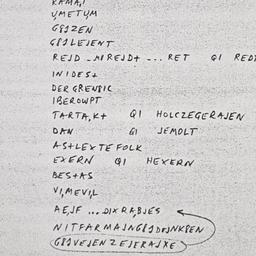 KAMAJI
UMETUM
GØJZEN
GØJLEJENT
REJD - MIREJD+ ... RET GI REDJ
INIDES+
DER GRENSIC
IBEROWPT
TARTA, K+ GI HOLCZEGERAJEN
DAN GI JEMOLT
AS+LEXTEFOLK
EXERN GI HEXERN
BES+AS
VI, MEVIL
AE, JF ... DIXRABJES
NITFARMAJNGØJDØJNKPEN
GØJVEJENZEJERAJXE